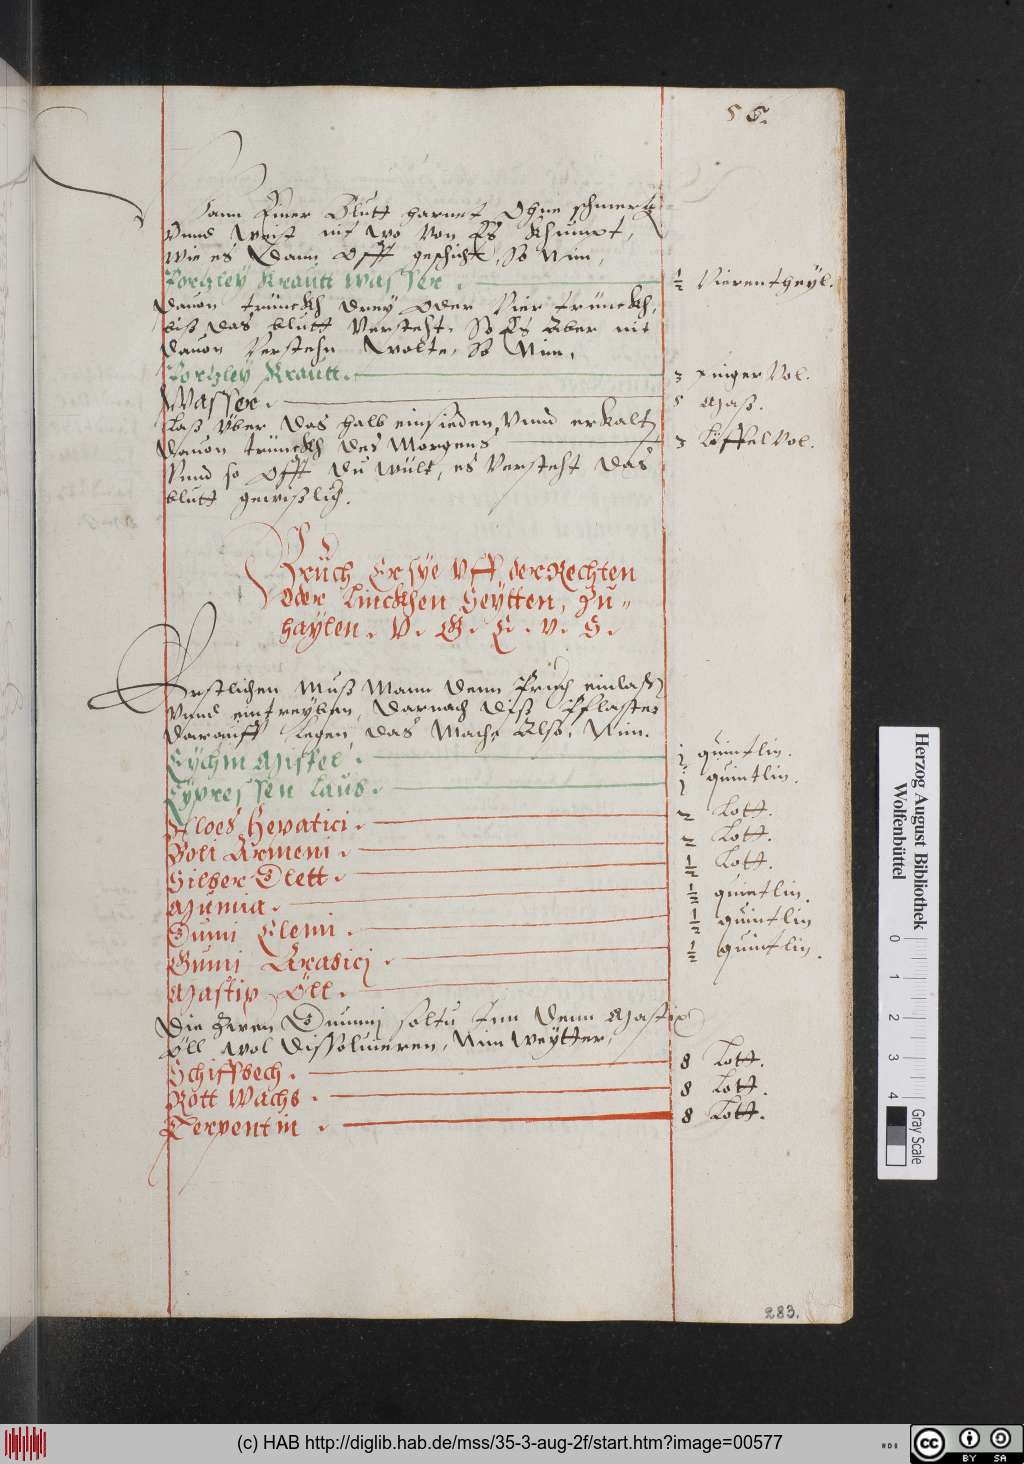 56.
Wann Einer Blutt harnet Ohne schmertz
Vnnd Weist nit wo von Es Khümpt,
wie es Dann Offt geschicht, So Nim,
Portzley Kraut Wasser. ½ Vierentheyl.
Dauon trünckh drey Oder Vier trünckh,
biß das blutt Versteht. So Es Aber nit
dauon Verstehn Wolte, So Nim,
Portzley Krautt. 3 finger Vol.
Wasser. 1 Maß.
Laß Vber das halb einsieden, Vnnd erkaltn
dauon trünckh des Morgens 3 Löffel Vol.
Vnnd so Offt du wült, es Versteht das
blutt gewißlich.
Brüch Er sye Vff der Rechten
Oder Linckhen Seytten, Zu„
haylen. V. G. E. V. S.
Erstlichen Muß Mann Denn Bruch einlaßn
Vnnd eintreyben, Darnach diß Pflaster
darauff Legen, das Mach Also. Nim.
Eychin Mistel. 1 quintlin.
Cypressen Laub. 1 quintlin.
Aloes Hepatici. 2 Lott.
Boli Armeni. 2 Lott.
Silber Glett. ½ Lott.
Mumia. ½ quintlin.
Gumi Elemi. ½ quintlin
Gumi Arabici. ½ quintlin.
Mastix Öll.
Die Zwen Gummj soltu Inn Denn Mastix
öll wol Dissoluieren, Nim Weytter,
Schiffbech. 8 Lott.
Rott Wachs. 8 Lott.
Terpentin. 8 Lott.
283.
Herzog August Bibliothek
Wolfenbüttel
0 1 2 3 4
Gray Scale
(c) HAB http://diglib.hab.de/mss/35-3-aug-2f/start.htm?image=00577
cc BY SA